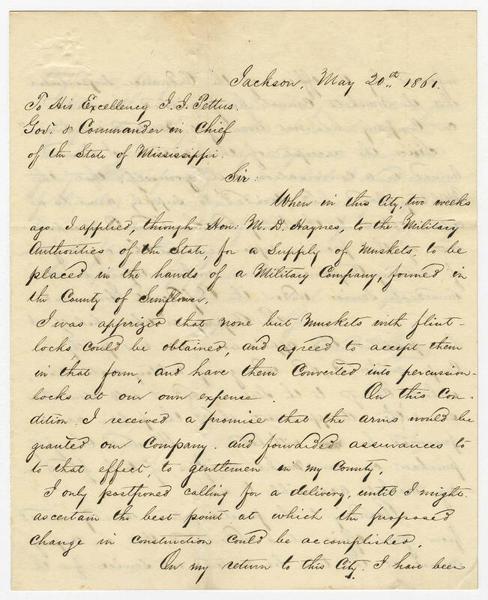 Jackson, May 20th 1861.
To His Excellency J. J. Pettus
Gov. & Commander in Chief
of the State of Mississippi.
Sir:
When in this City, two weeks
ago. I applied, through Hon: M. D. Haynes, to the Military
Authorities of the State, for a Supply of Muskets, to be
placed in the hands of a Military Company, formed in
the County of Sunflower.
I was apprized that none but Muskets with flint-
locks, could be obtained, and agreed to accept them
in that form, and have them Converted into percussion-
locks at our own expense. On this Con-
dition. I received a promise that the arms would be
granted our Company. and forwarded assurances to
to that effect, to gentlemen in my County.
I only postponed calling for a delivery, until I might
ascertain the best point at which the proposed
change in construction could be accomplished.
On my return to this City. I have been